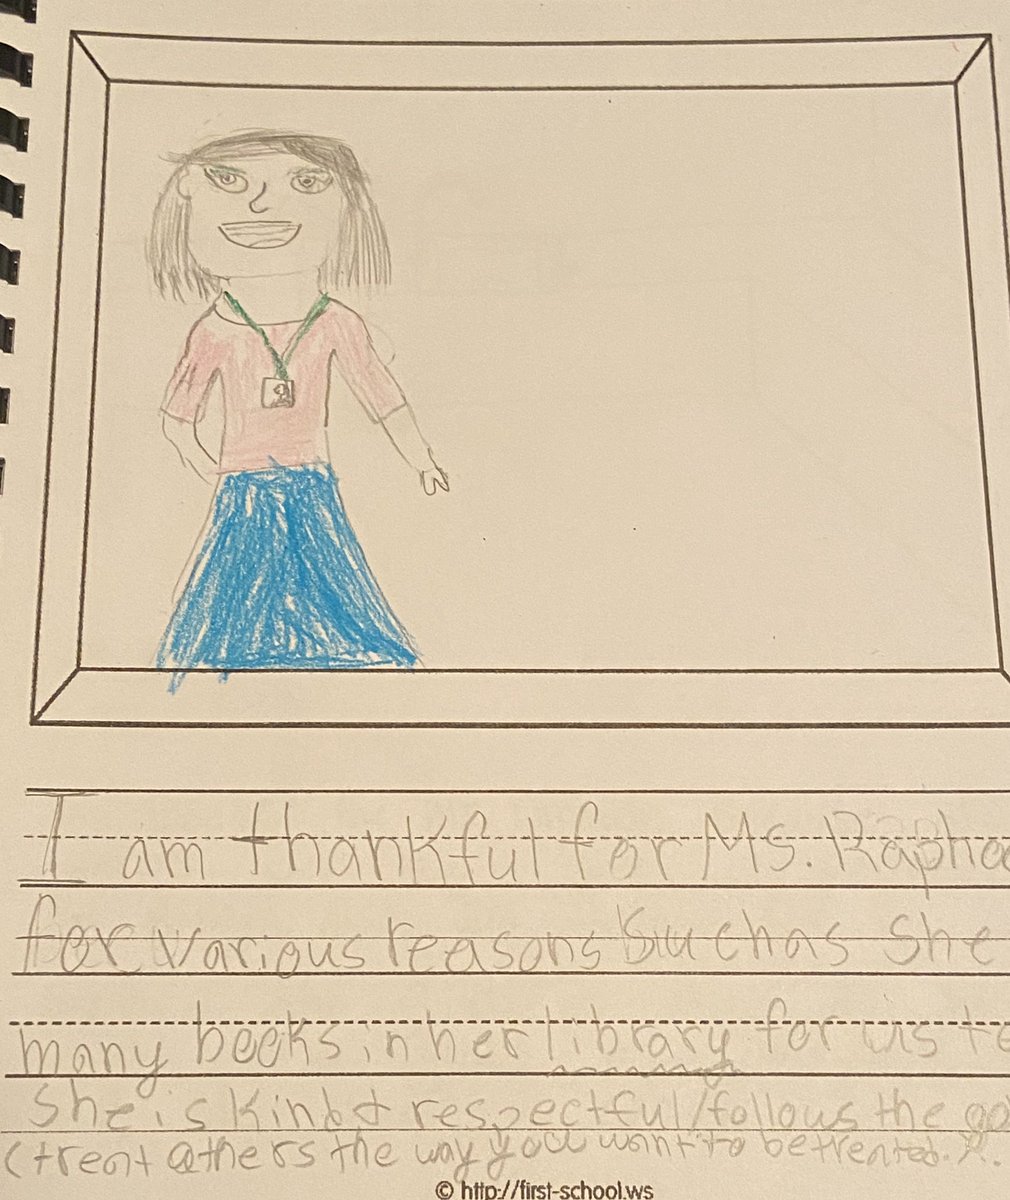 I am thankful for Ms. Rapha
for various reasons such as she
many books in her library for us to
she is kind & respectful/follows the go
(treat others the way you want to be treated.
© http://first-school.ws